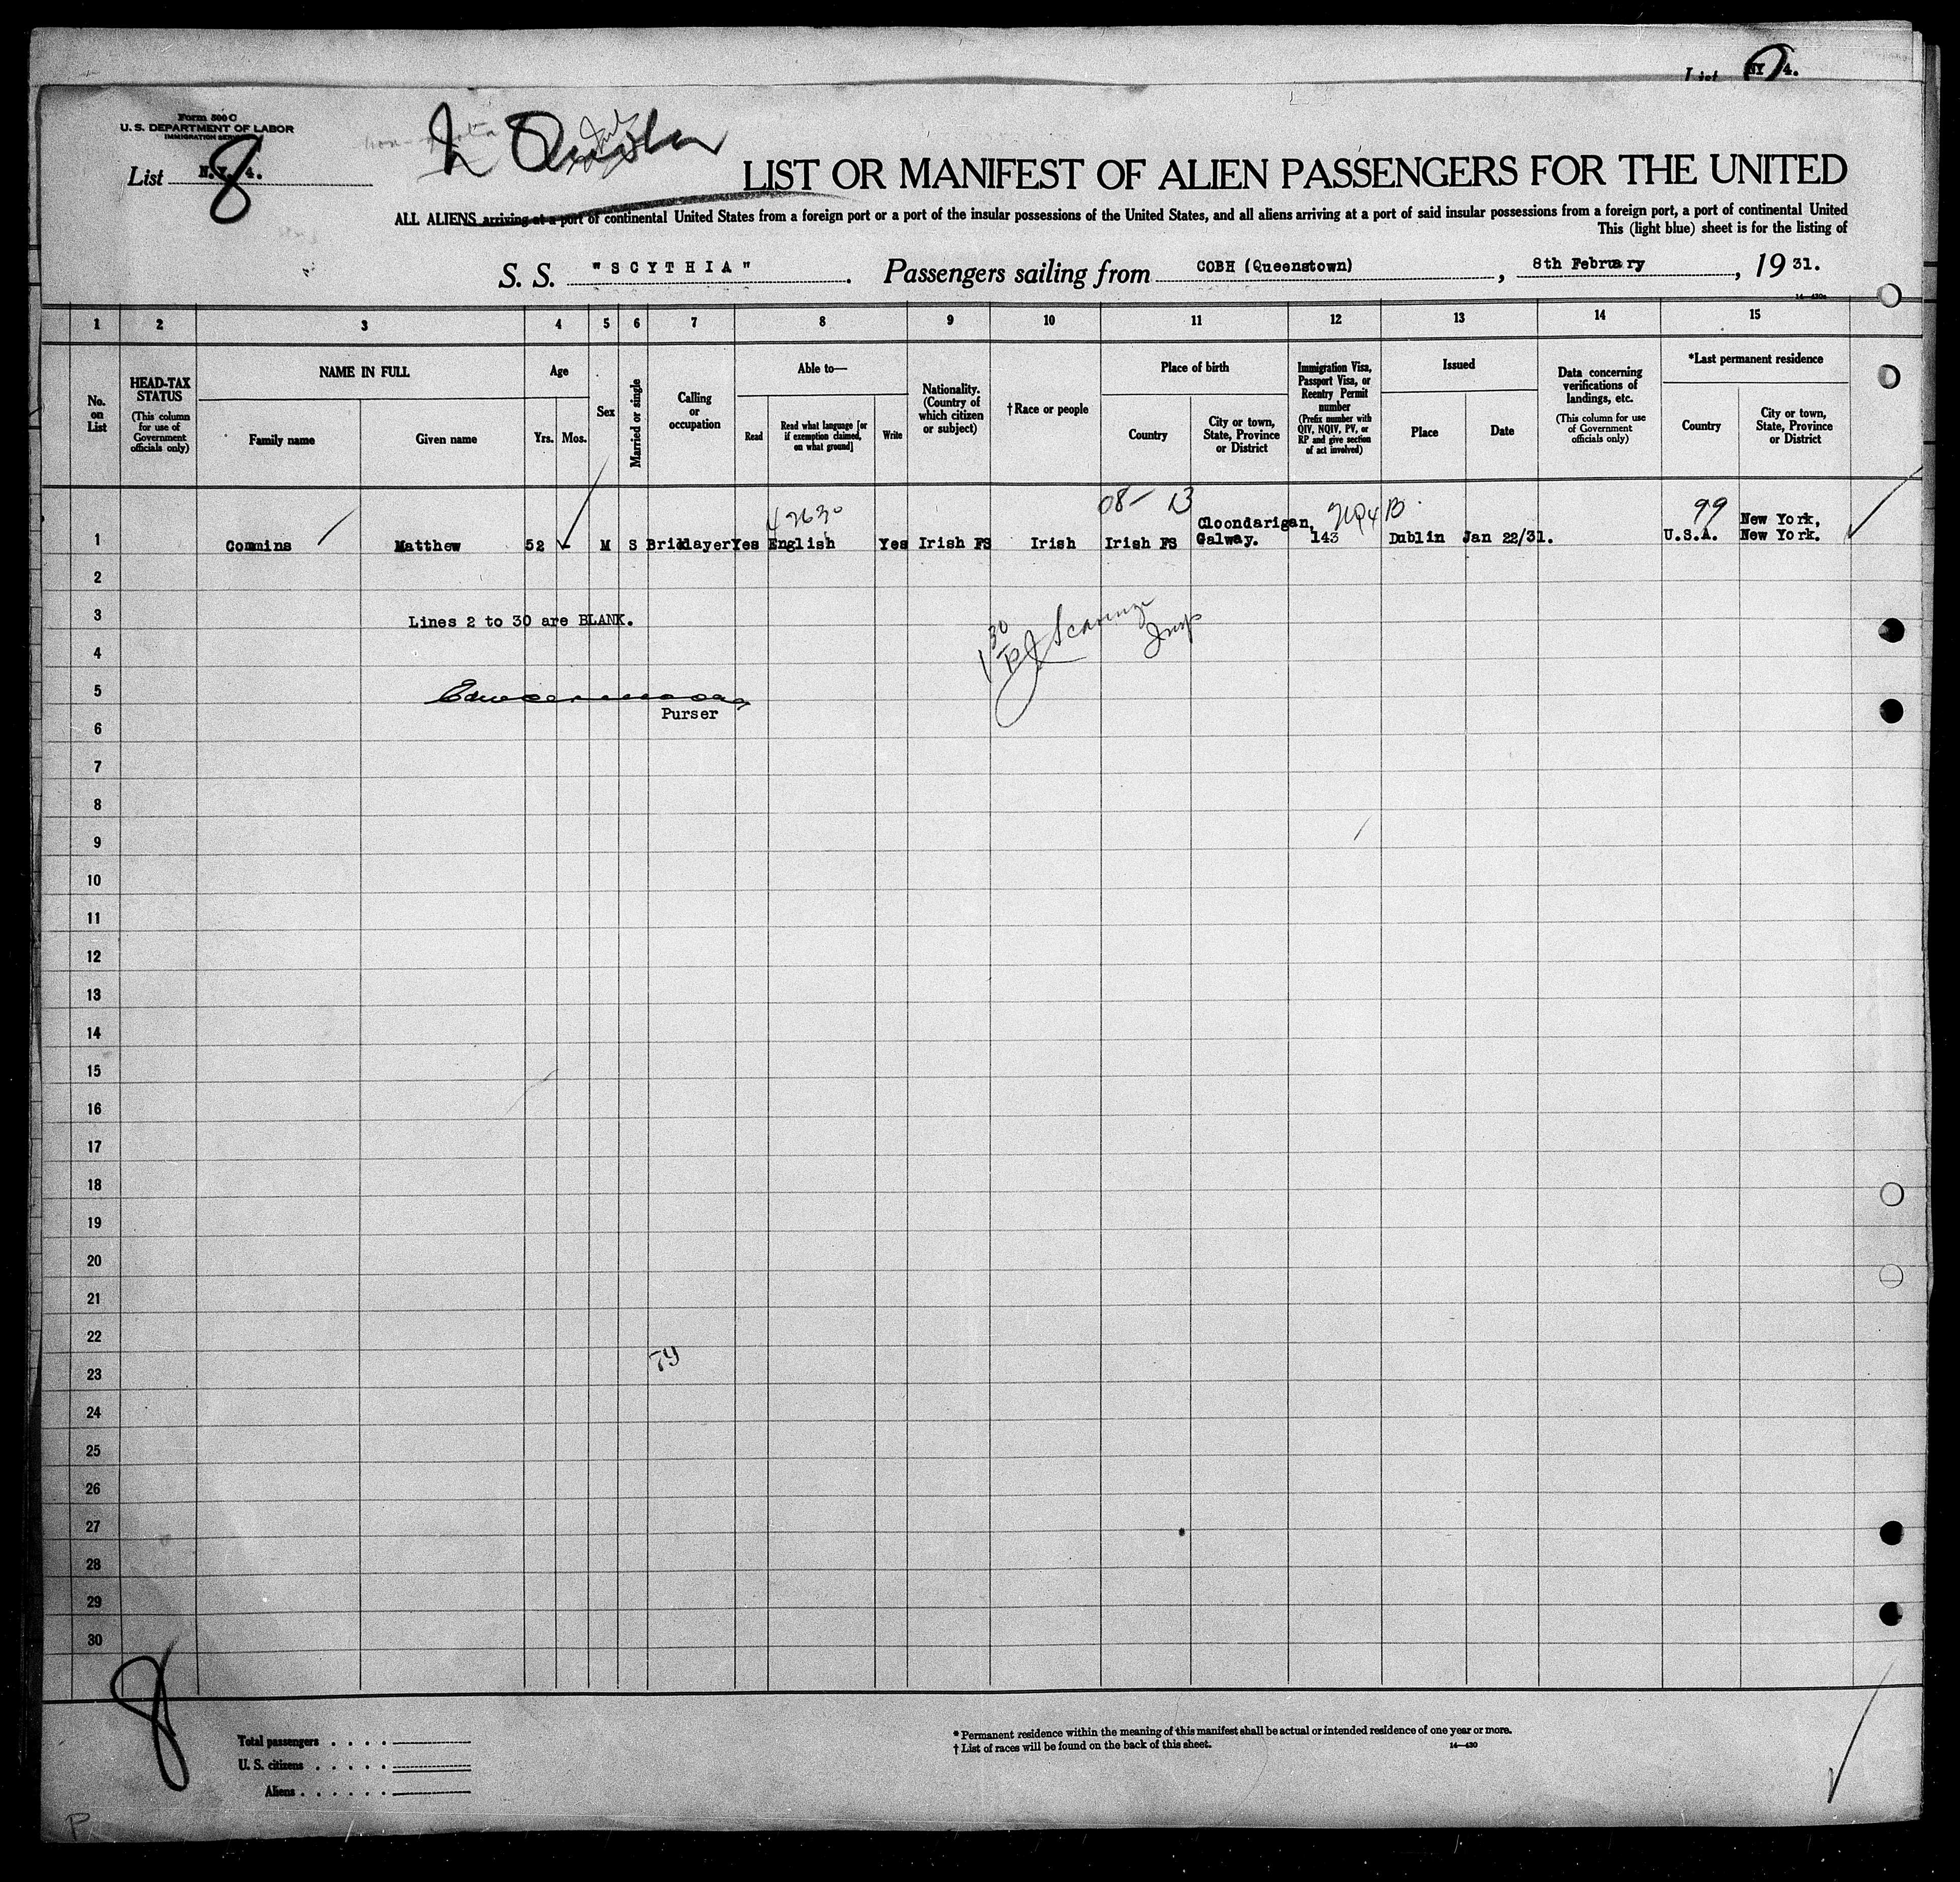 List NY 4.
Form 500 C
U. S. DEPARTMENT OF LABOR
IMMIGRATION SERVICE
List N.Y. 4.
8
LIST OR MANIFEST OF ALIEN PASSENGERS FOR THE UNITED
ALL ALIENS arriving at a port of continental United States from a foreign port or a port of the insular possessions of the United States, and all aliens arriving at a port of said insular possessions from a foreign port, a port of continental United
This (light blue) sheet is for the listing of
S. S. "SCYTHIA". Passengers sailing from COBH (Queenstown), 8th February, 19 31.
14—430a
1 2 3 4 5 6 7 8 9 10 11 12 13 14 15
No. on List
HEAD-TAX STATUS
(This column for use of Government officials only)
NAME IN FULL
Family name
Given name
Age
Yrs. Mos.
Sex
Married or single
Calling or occupation
Able to—
Read
Read what language [or if exemption claimed, on what ground]
Write
Nationality. (Country of which citizen or subject)
†Race or people
Place of birth
Country
City or town, State, Province or District
Immigration Visa, Passport Visa, or Reentry Permit number
(Prefix number with QIV, NQIV, PV, or RP and give section of act involved)
Issued
Place
Date
Data concerning verifications of landings, etc.
(This column for use of Government officials only)
*Last permanent residence
Country
City or town, State, Province or District
08— 13
99
1 Commins Matthew 52 - M S Bricklayer Yes English Yes Irish FS Irish Irish FS Cloondarigan, Galway. 143 Dublin Jan 22/31. U.S.A. New York, New York.
2
3 Lines 2 to 30 are BLANK.
4
5
Purser
6
7
8
9
10
11
12
13
14
15
16
17
18
19
20
21
22
79
23
24
25
26
27
28
29
30
8
Total passengers . . . .
U. S. citizens . . . . .
Aliens . . . . . .
* Permanent residence within the meaning of this manifest shall be actual or intended residence of one year or more.
† List of races will be found on the back of this sheet.
14—430
P